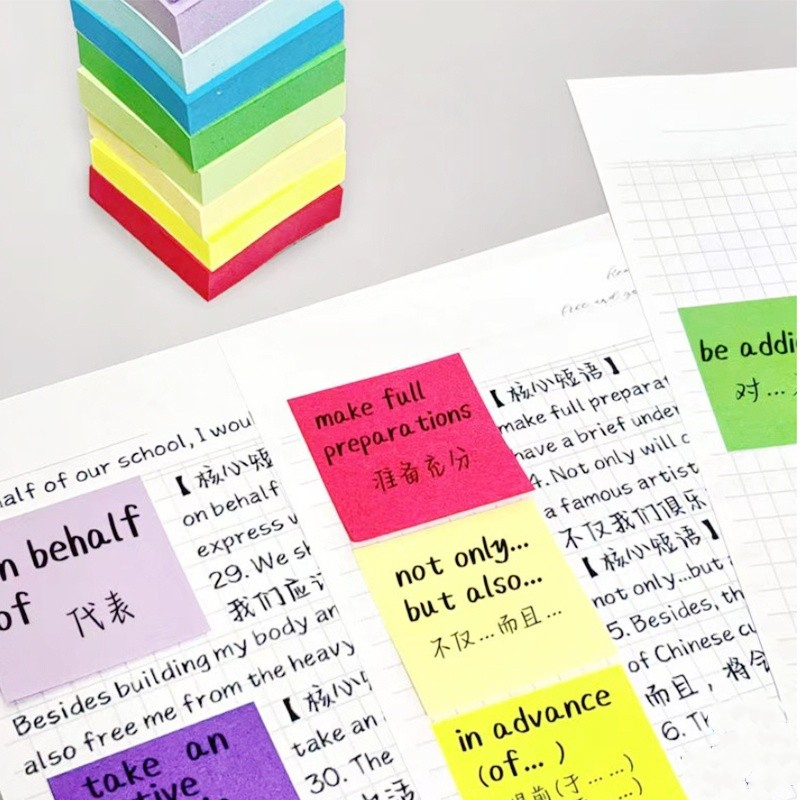 half of our school, I woul
【核心短
on behalf
express w
29. We sh
我们应该
n behalf
of
代表
Besides building my body an
also free me from the heavy
take an
tive
【核心
take an
30. The
make full
preparations
准备充分
not only...
but also...
不仅...而且...
in advance
(of... )
提前(于... ...)
【核心短语】
make full preparat
have a brief under
4. Not only will
a famous artist
不仅我们俱乐
【核心短语】
not only...but
5. Besides, th
of Chinese cu
而且，将会
6. Th
be addi
对...